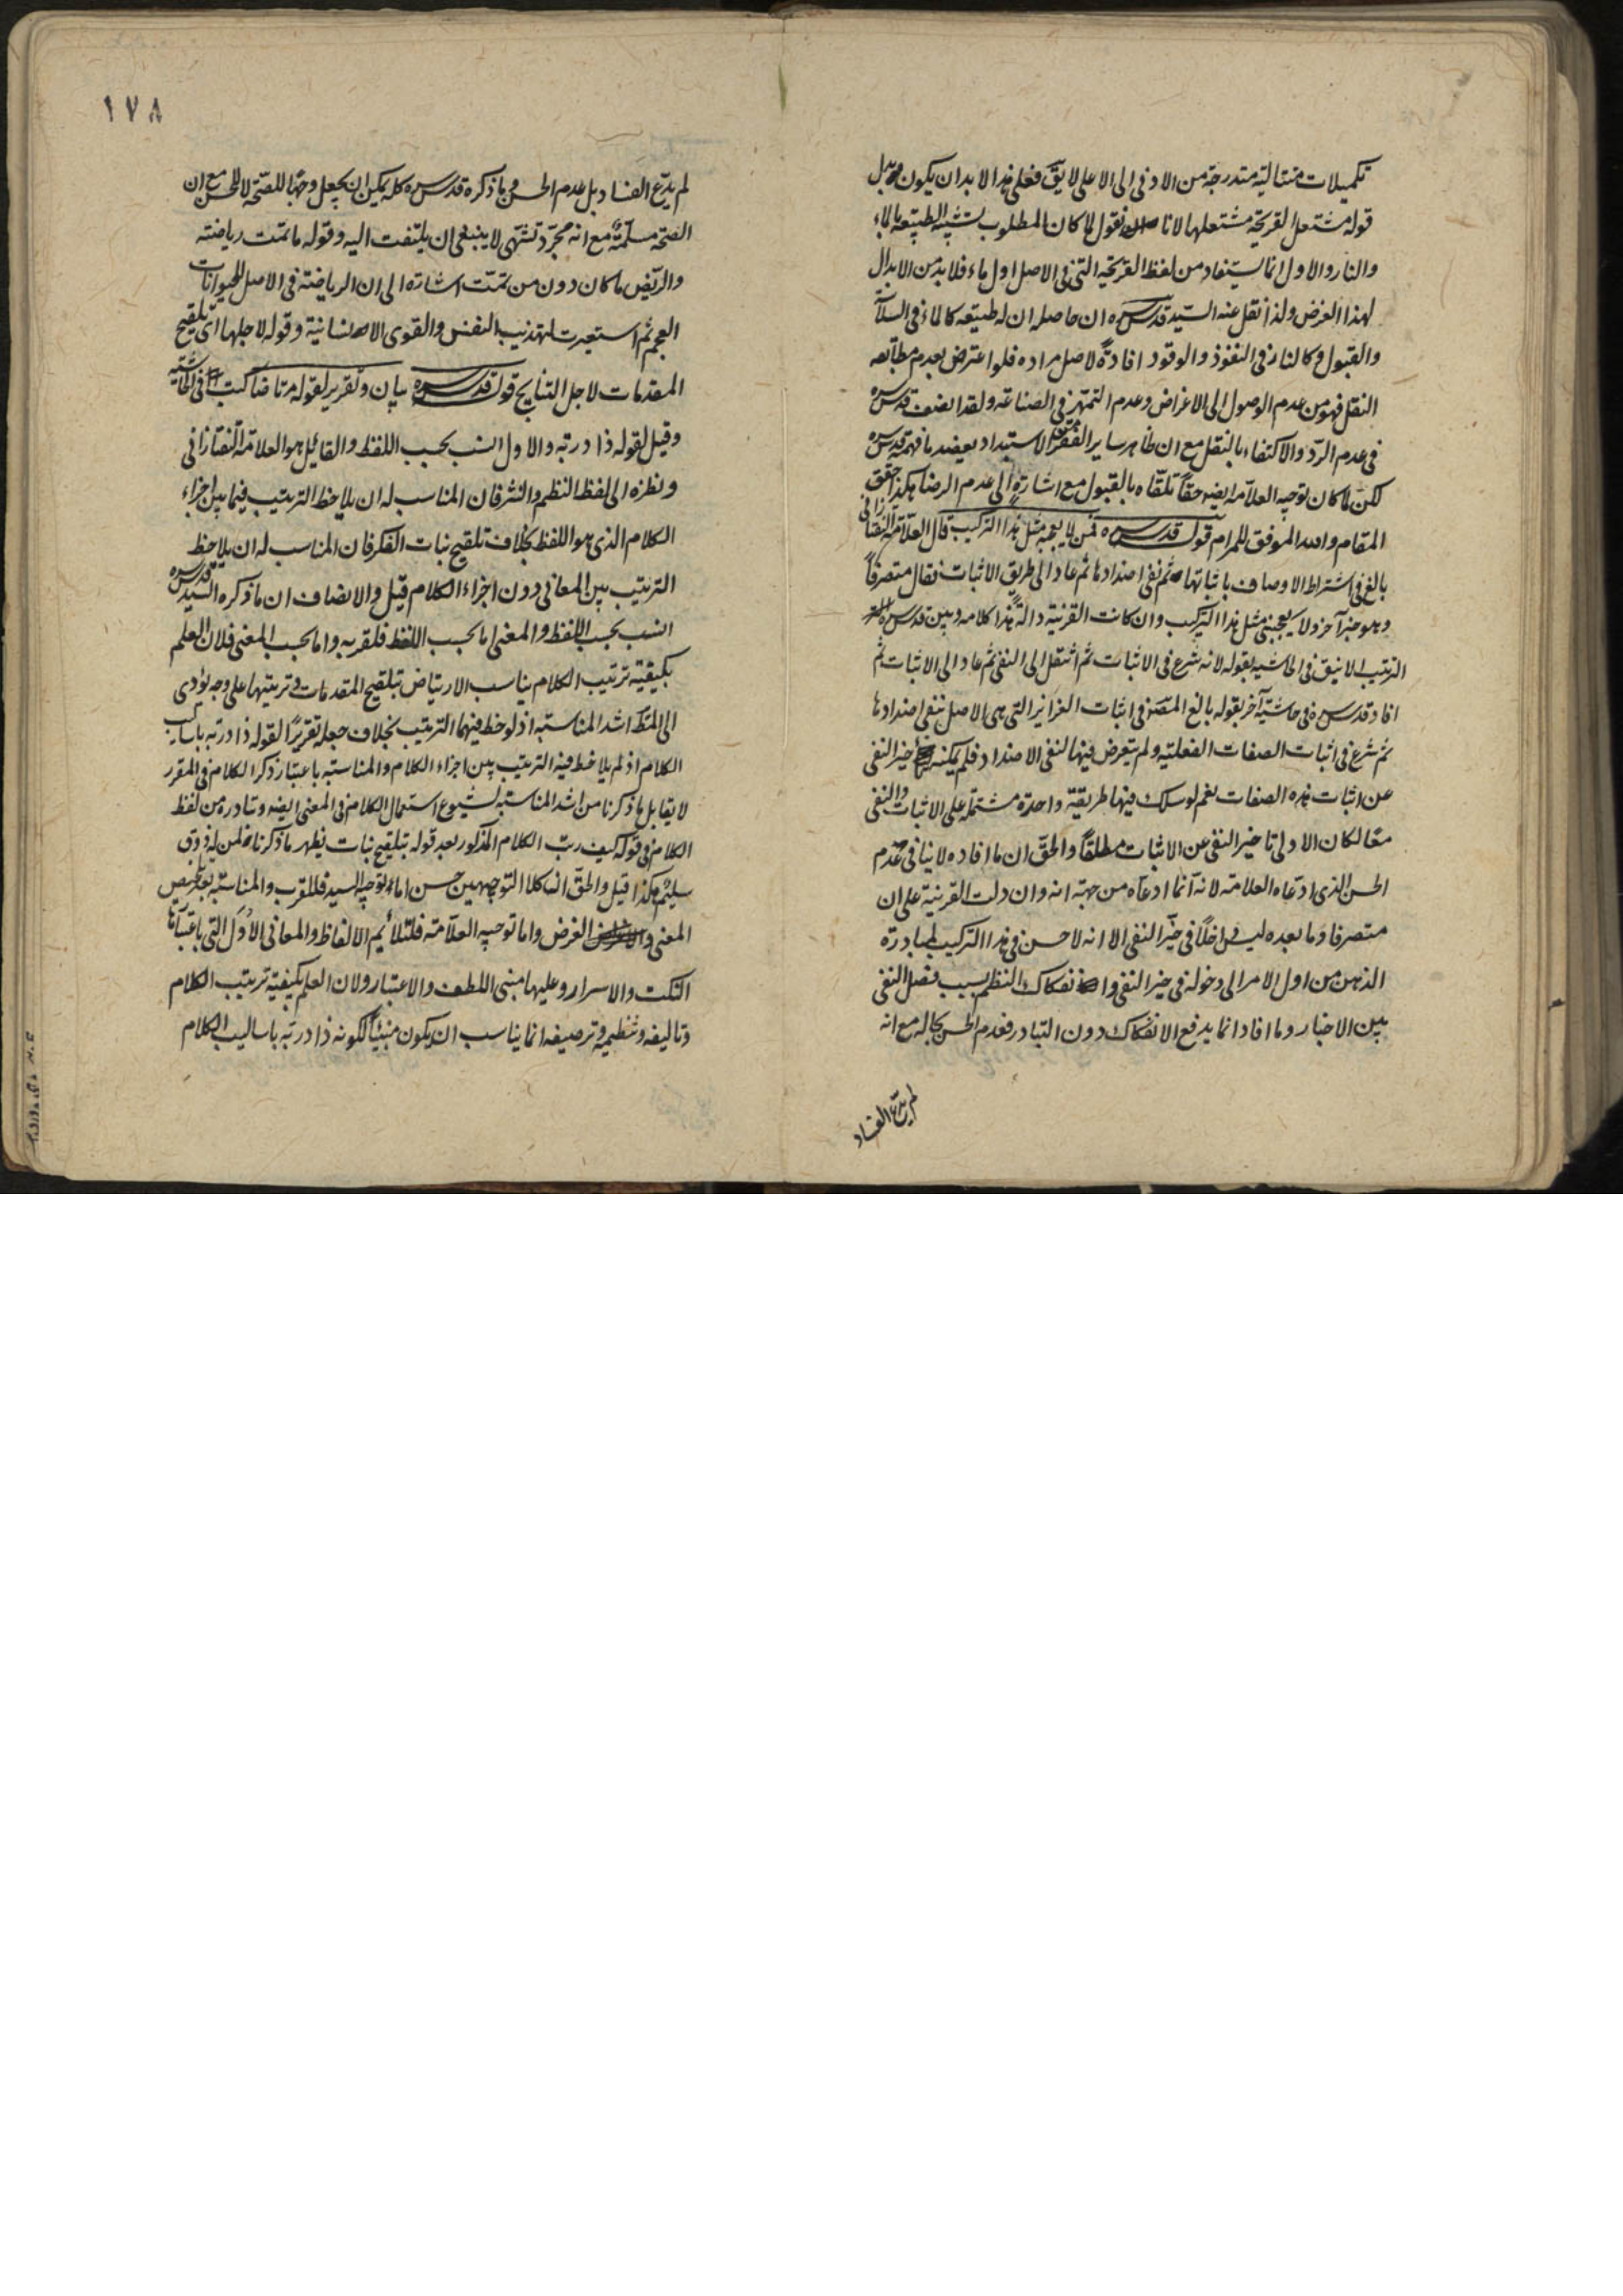 تكميلات متتالية متدرجة من الادنى الى الاعلى لايق فعلى هذا لا بد ان يكون بدل
قوله مشتعل القريحة مشتعلها لانا نقول لما كان المطلوب تشبيه الطبيعة بالماء
والنار والاول انما يستفاد من لفظ القريحة التى فى الاصل اول ماء فلا بد من الابدال
لهذا الغرض ولذا نقل عنه السيد قدس سره ان حاصله ان له طبيعة كالماء فى
والقبول وكالنار فى النفوذ والوقود افادة لاصل مراده فلو اعترض بعدم مطابقة
النقل فهو من عدم الوصول الى الاغراض وعدم التمهر فى الصناعة ولقد انصف قدس سره
فى عدم الرد والاكتفاء بالنقل مع ان ظاهر ساير الفقر الاستبداد يعضد ما فهمه قدس سره
لكن لما كان توجيه العلامة ايضه حقا تلقاه بالقبول مع اشارة الى عدم الرضا هكذا حقق
المقام والله الموفق للمرام قوله قدس سره فمن لا يعجبه مثل هذا التركيب قال العلامة التفتازانى
بالغ فى اشتراط الاوصاف باثباتها ثم نفى اضدادها ثم عاد الى طريق الاثبات فقال متصرفا
وهو خبر آخر ولا يعجبنى مثل هذا التركيب وان كانت القرينة دالة هذا كلامه وبين قدس سره
الترتيب الانيق فى الحاشية بقوله لانه شرع فى الاثبات ثم انتقل الى النفى ثم عاد الى الاثبات ثم
افاد قدس سره فى حاشية آخر بقوله بالغ المص فى اثبات الغرائز التى هى الاصل بنفى اضدادها
ثم شرع فى اثبات الصفات الفعلية ولم يتعرض فيها لنفى الاضداد فلم يمكنه تاخير النفى
عن اثبات هذه الصفات نعم لو سلك فيها طريقة واحدة مشتملة على الاثبات والنفى
معا لكان الاولى تاخير النفى عن الاثبات مطلقا والحق ان ما افاده لا ينافى عدم
الحسن الذى ادعاه العلامة لانه انما ادعاه من جهة انه وان دلت القرينة على ان
متصرفا وما بعده ليس داخلا فى حيز النفى الا انه لا حسن فى هذا التركيب لمبادرة
الذهن من اول الامر الى دخوله فى حيز النفى وانفكاك النظم بسبب فصل النفى
بين الاخبار وما افاد انما يدفع الانفكاك دون التبادر فعدم الحسن بحاله مع انه
لم يدع الفساد
١٧٨
لم يدع الفساد بل عدم الحسن وما ذكره قدس سره كله يمكن ان يجعل وجها للصحة لا للحسن مع ان
الصحة مسلمة مع انه مجرد تشهى لا ينبغى ان يلتفت اليه وقوله ما تمت رياضته
والريض ما كان دون من تمت اشارة الى ان الرياضة فى الاصل للحيوانات
العجم ثم استعيرت لتهذيب النفس والقوى الانسانية وقوله لاجلها اى تلقيح
المقدمات لاجل النتايج قوله قدس سره بيان وتقرير لقوله مرتاضا كتب فى الحاشية
وقيل لقوله ذا دربة والاول انسب بحسب اللفظ والقائل هو العلامة التفتازانى
ونظره الى لفظ النظم والنثر فان المناسب له ان يلاحظ الترتيب فيما بين اجزاء
الكلام الذى هو اللفظ بخلاف تلقيح بنات الفكر فان المناسب له ان يلاحظ
الترتيب بين المعانى دون اجزاء الكلام قيل والانصاف ان ما ذكره السيد قدس سره
انسب بحسب اللفظ والمعنى اما بحسب اللفظ فلقربه واما بحسب المعنى فلان العلم
بكيفية ترتيب الكلام يناسب الارتياض بتلقيح المقدمات وترتيبها على وجه يؤدى
الى المط اشد المناسبة اذ لوحظ فيهما الترتيب بخلاف جعله تقريرا لقوله ذا دربة باساليب
الكلام اذ لم يلاحظ فيه الترتيب بين اجزاء الكلام والمناسبة باعتبار ذكر الكلام فى المقرر
لا يقابل ما ذكرنا من اشد المناسبة لشيوع استعمال الكلام فى المعنى ايضه وتبادره من لفظ
الكلام فى قوله كيف رتب الكلام المذكور بعد قوله بتلقيح بنات يظهر ما ذكرنا لمن له ذوق
سليم هكذا قيل والحق ان كلا التوجيهين حسن اما توجيه السيد فللقرب والمناسبة بعد تلخيص
المعنى والغرض واما توجيه العلامة فلتلائيم الالفاظ والمعانى الاول التى باعتبارها
النكت والاسرار وعليها مبنى اللطف والاعتبار ولان العلم بكيفية ترتيب الكلام
وتاليفه وتنظيمه وترصيفه انما يناسب ان يكون مبنيا لكونه ذا دربة باساليب الكلام